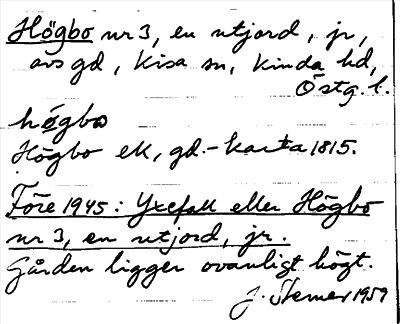 Högbo nr 3, en utjord, jr,
avs gd, Kisa sn, Kinda hd,
Östg. l.
högbo
Högbo ek, gd.-karta 1815.
Före 1945: Yxefall eller Högbo
nr 3, en utjord, jr.
Gården ligger ovanligt högt.
J. Stemer 1959